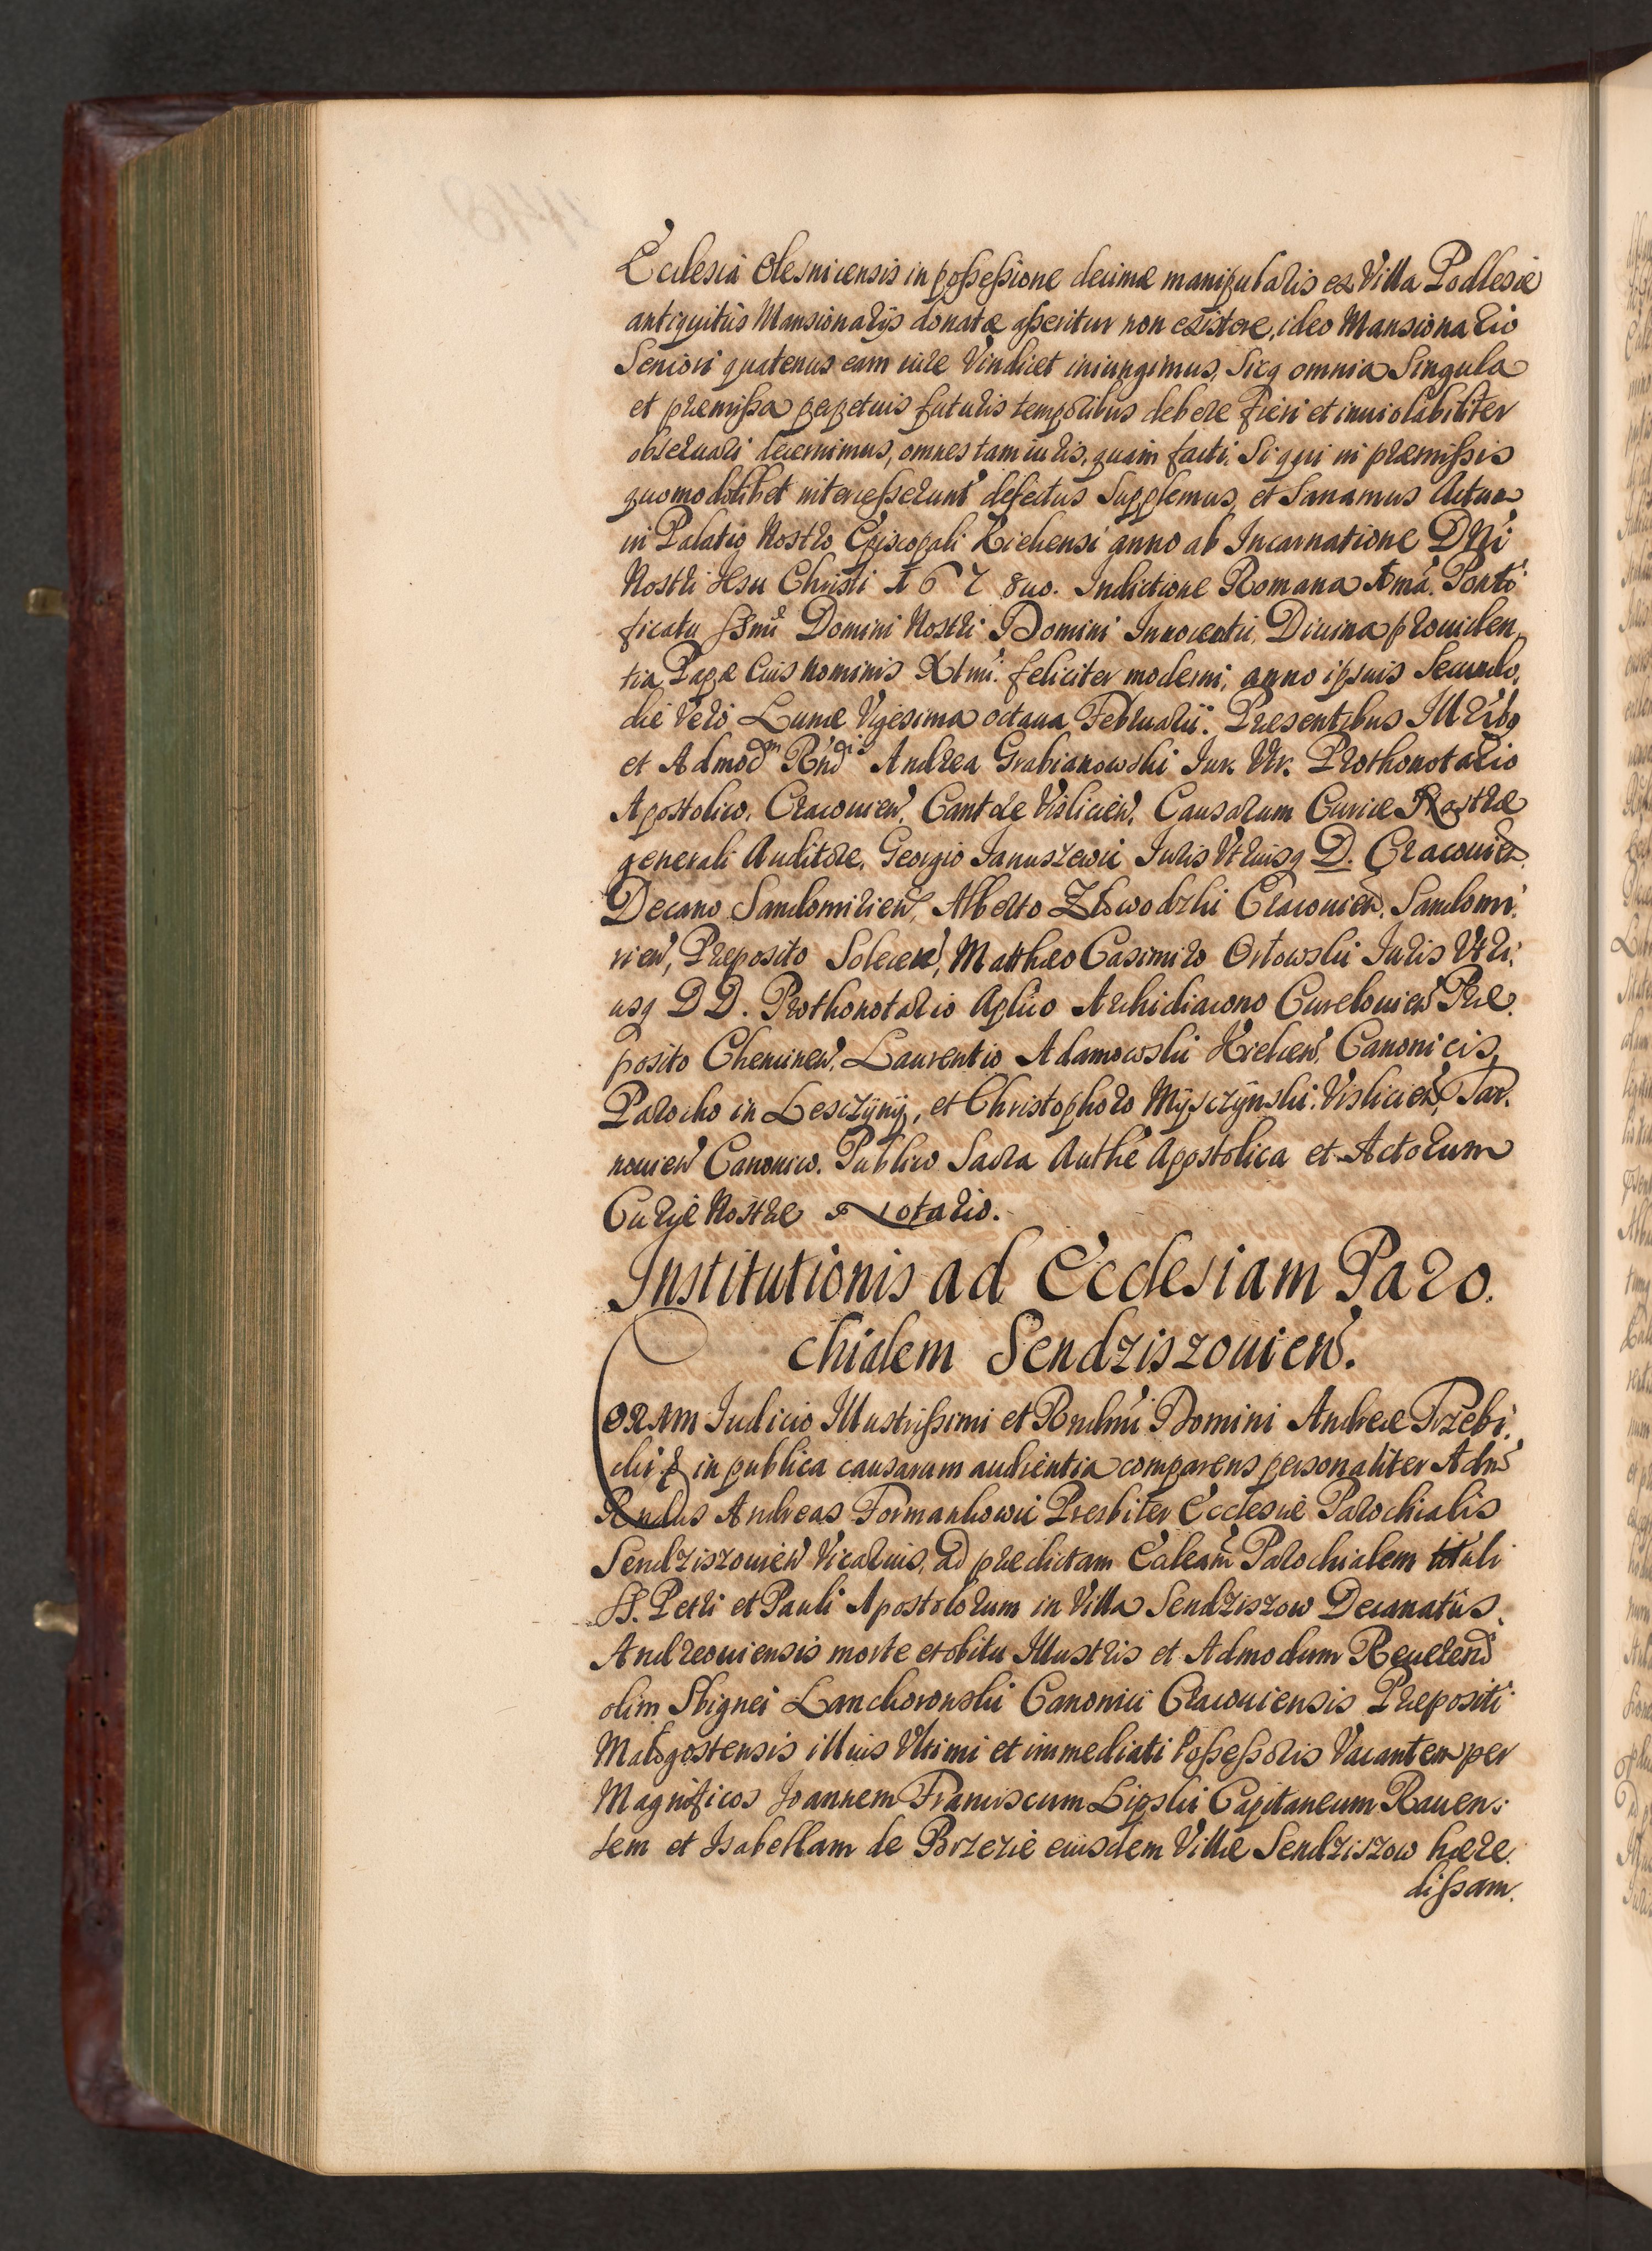 Ecclesia Olesnicensis in possessione decimæ manipularis ex Villa Podlesie
antiquitùs Mansionarijs donatæ asseritur non existere, ideo Mansionario
Seniori quatenus eam iure Vindicet iniungimus, Sicq omnia Singula
et præmissa perpetuis futuris temporibus debere fieri et inuiolabiliter
obseruari decernimus, omnes tam iuris, quam facti, Si qui in præmissis
quomodolibet intercesserunt defectus Supplemus, et Sanamus Actum
in Palatio Nostro Episcopali Kielcensi anno ab Incarnatione Dni
Nostri Iesu Christi 167 8uo. Indictione Romana 1ma. Ponti
ficatu SSmi Domini Nostri Domini Innocentii, Diuina prouiden,
tia Papæ Eius Nominis XImi. feliciter moderni, anno ipsius Secundo,
die Verò Lunæ Vigesima octaua Februarii. Præsentibus Illribq
et Admodm Rndis Andrea Grabianowski Iur. Vtr. Prothonotario
Apostolico, Cracouien, Cantore Vislicien, Causarum Curiæ Nostræ
generali Auditore, Georgio Januszewic Iuris Vtriusq D. Cracouien
Decano Sandomirien, Alberto Zlowodzki Cracouien. Sandomi
rien, Præposito Solecen, Matthæo Casimiro Orlowski Iuris Vtri
usq D D. Prothonotario Aplico Archidiacono Curelouien Præ
posito Chemcinen, Laurentio Adamowski Kielcen, Canonicis,
Parocho in Lesczÿnÿ, et Christophoro Mÿsczÿnski. Vislicien, Tar
nouien Canonico. Publico Sacra Authe Apostolica et Actorum
Curiæ Nostræ Notario.
Institutionis ad Ecclesiam Paro
chialem Sendziszouien.
Coram Iudicio Illustrissimi et Rndmi Domini Andreæ Trzebi
cki & in publica causarum audientia comparens personaliter Adm
Rndus Andreas Formankowic Presbiter Ecclesiæ Parochialis
Sendziszouien Vicarius, ad prædictam Ecleam Parochialem tituli
SS. Petri et Pauli Apostolorum in Villa Sendziszow Decanatûs
Andreouiensis morte et obitu Illustris et Admodum Reuerend
olim Sbignei Lanckoronski Canonici Cracouiensis Præpositi
Malogostensis illius Vltimi et immediati Possessoris Vacantem per
Magnificos Joannem Franciscum Lipski Capitaneum Rauen
sem et Isabellam de Brzezie eiusdem Villæ Sendziszow hære
dissam.